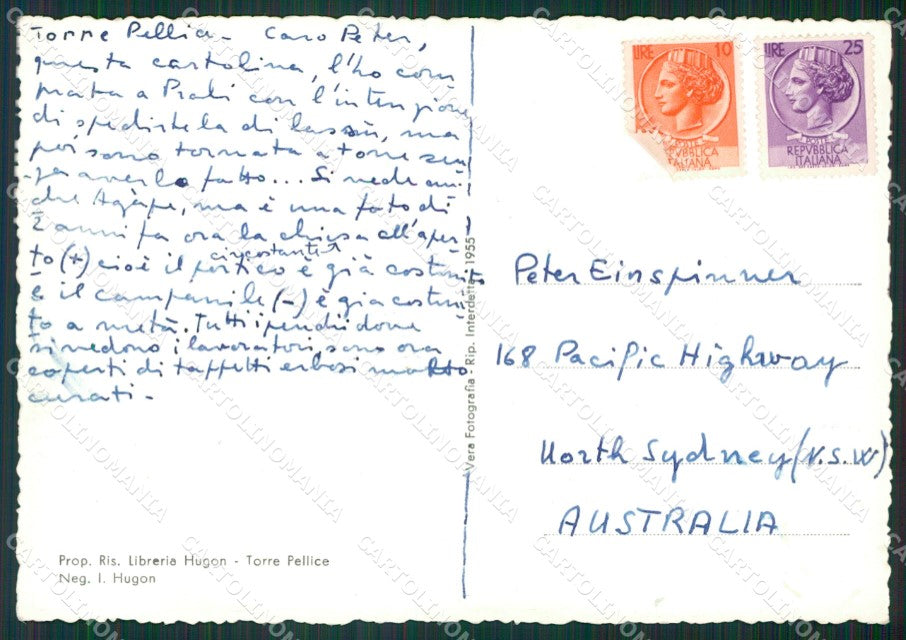 Torre Pellice - Caro Peter,
questa cartolina, l'ho com
prata a Prali con l'intenzione
di spedirtela di lassù, ma
poi sono tornata a Torre sen
za averlo fatto... Si vede an
che Agàpe, ma è una foto di
2 anni fa ora la chiesa all'aper
to (+) cioè il portico circostante è già costruito
e il campanile (-) è già costrui
to a metà. Tutti i pendii dove
si vedono i lavoratori, sono ora
coperti di tappetti erbosi molto
curati -
Prop. Ris. Libreria Hugon - Torre Pellice
Neg. I. Hugon
Vera Fotografia - Rip. Interdetta - 1955
LIRE 10
POSTE
REPVBBLICA
ITALIANA
LIRE 25
POSTE
REPVBBLICA
ITALIANA
Peter Einspinner
168 Pacific Highway
North Sydney (N.S.W)
AUSTRALIA
CARTOLINOMANIA